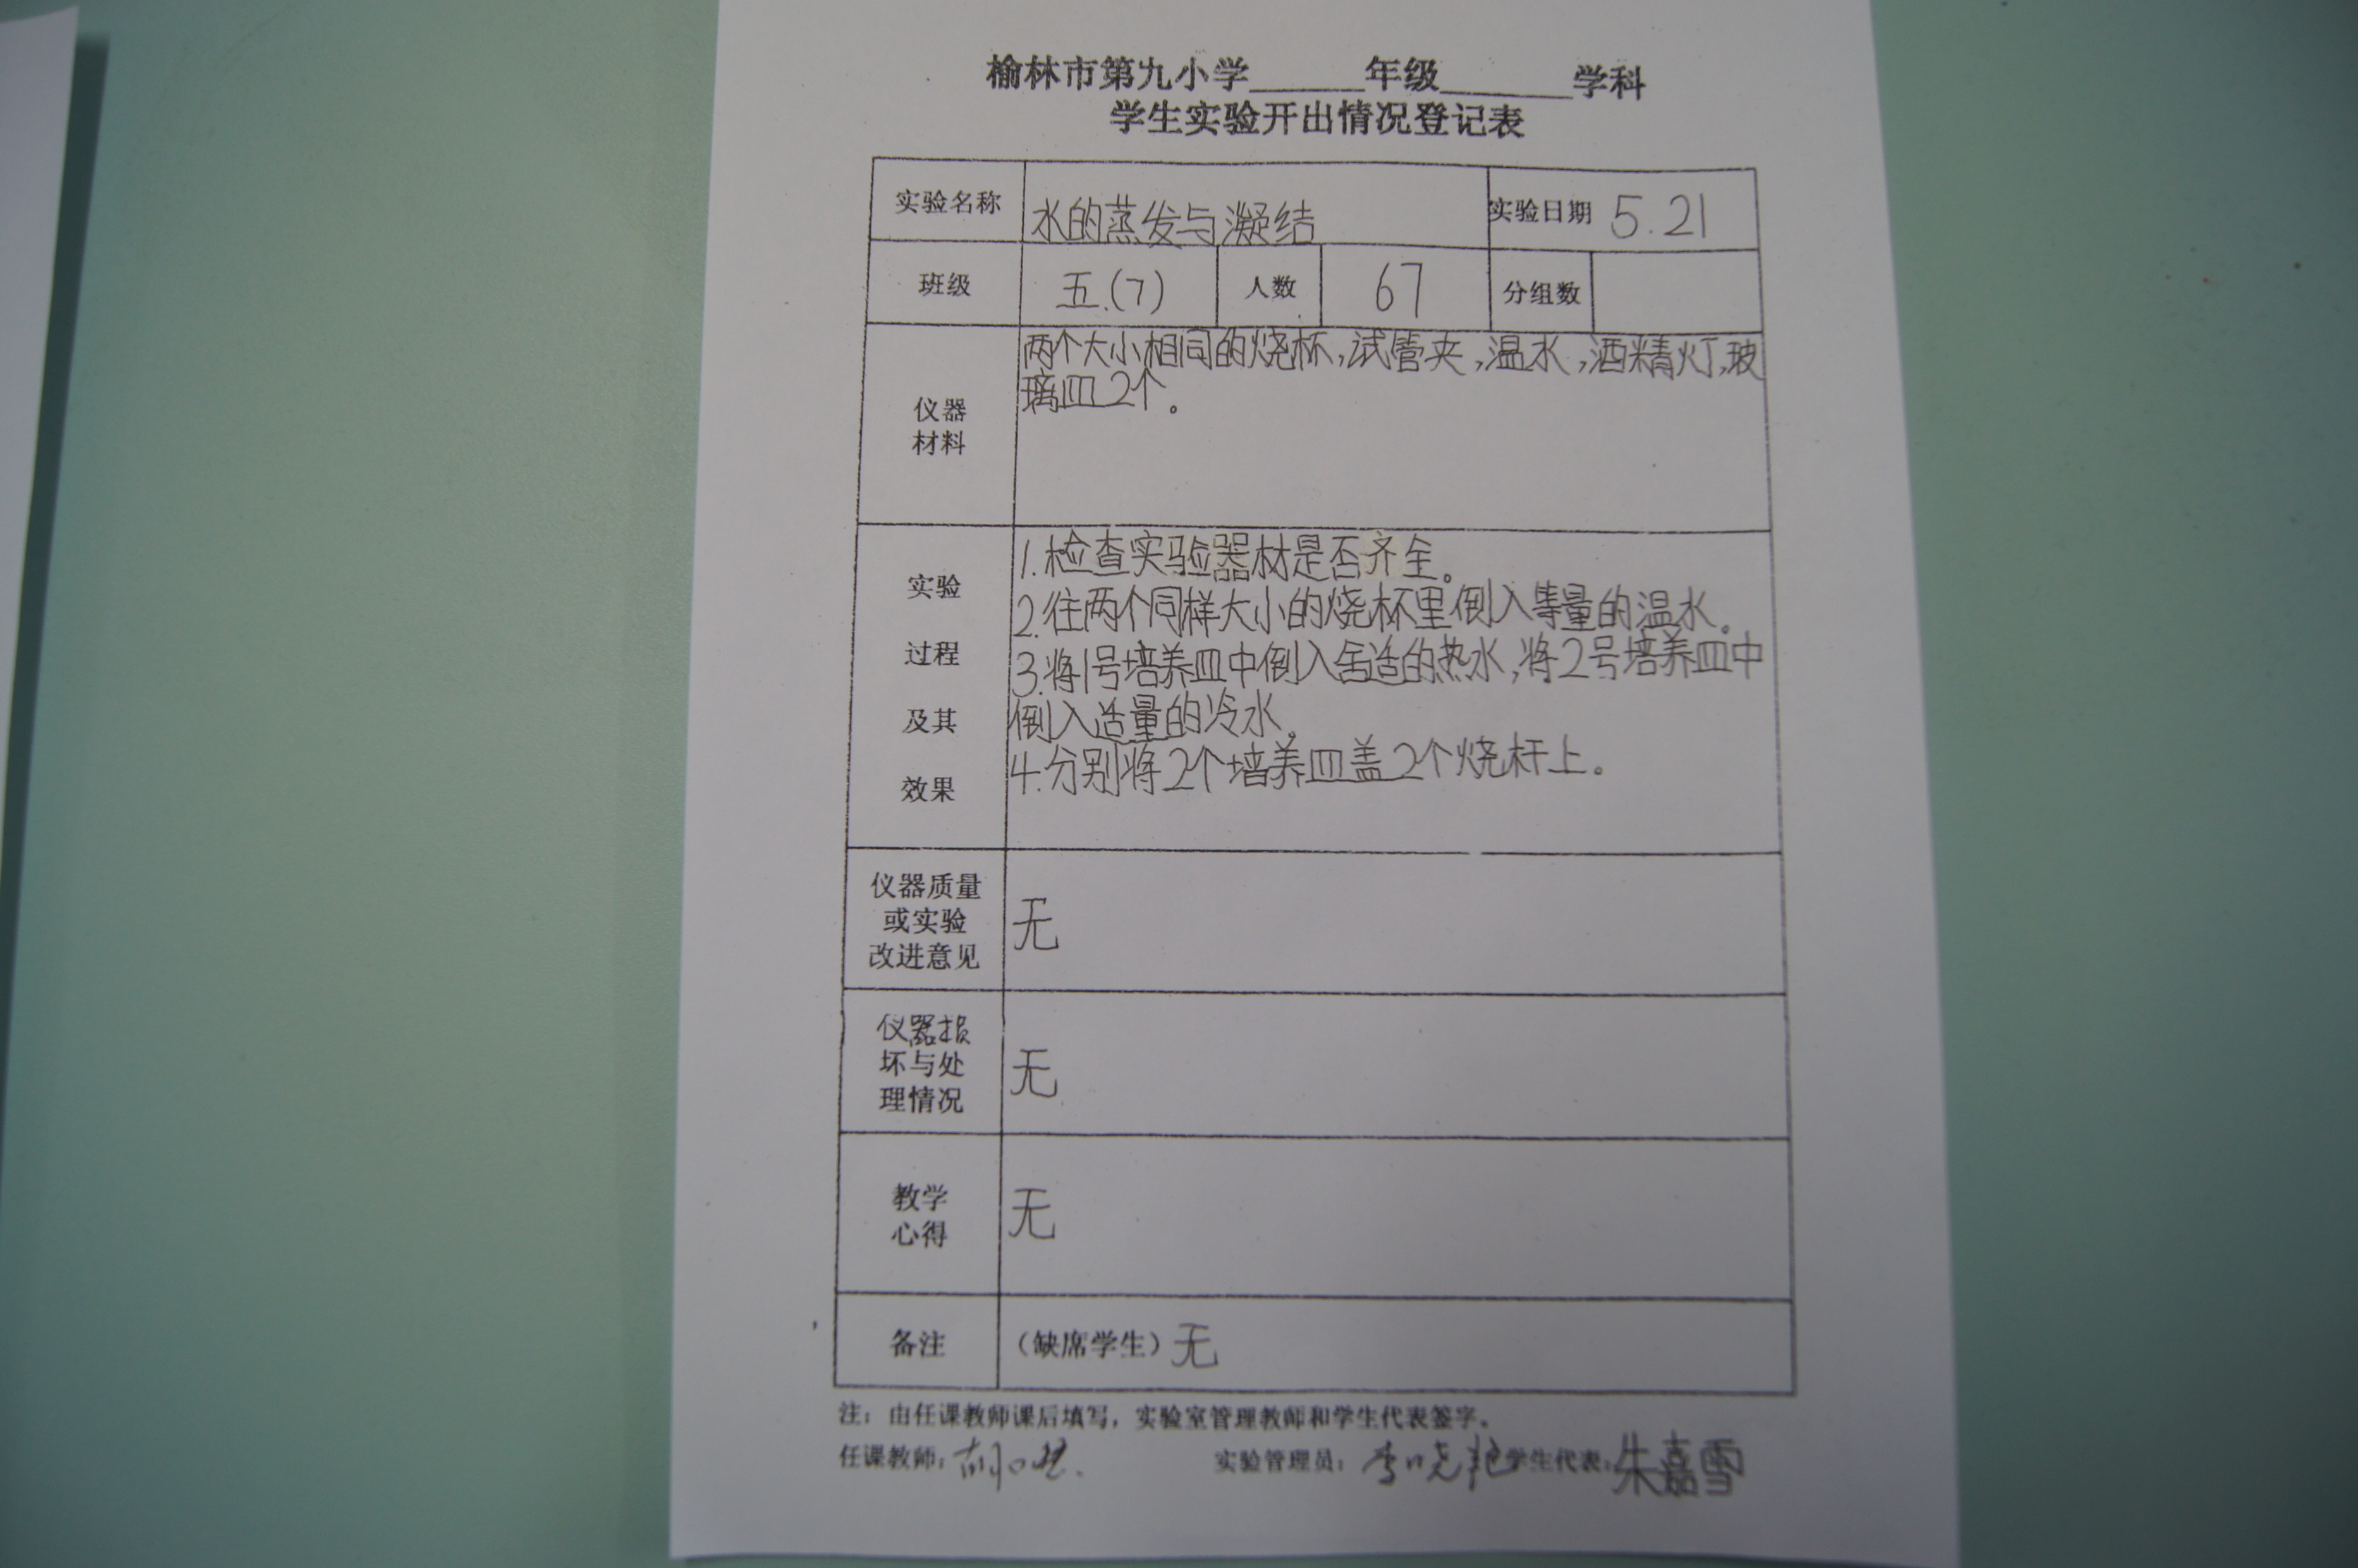 榆林市第九小学______年级_______学科
学生实验开出情况登记表
实验名称 水的蒸发与凝结 实验日期 5.21
班级 五.(7) 人数 67 分组数
仪器
材料
两个大小相同的烧杯,试管夹,温水,酒精灯,玻
璃皿2个。
实验
过程
及其
效果
1.检查实验器材是否齐全。
2.往两个同样大小的烧杯里倒入等量的温水。
3.将1号培养皿中倒入舍适的热水,将2号培养皿中
倒入适量的冷水。
4.分别将2个培养皿盖2个烧杆上。
仪器质量
或实验
改进意见
无
仪器损
坏与处
理情况
无
教学
心得
无
备注 (缺席学生) 无
注：由任课教师课后填写，实验室管理教师和学生代表签字。
任课教师： 实验管理员：李晓艳 学生代表：朱嘉雪